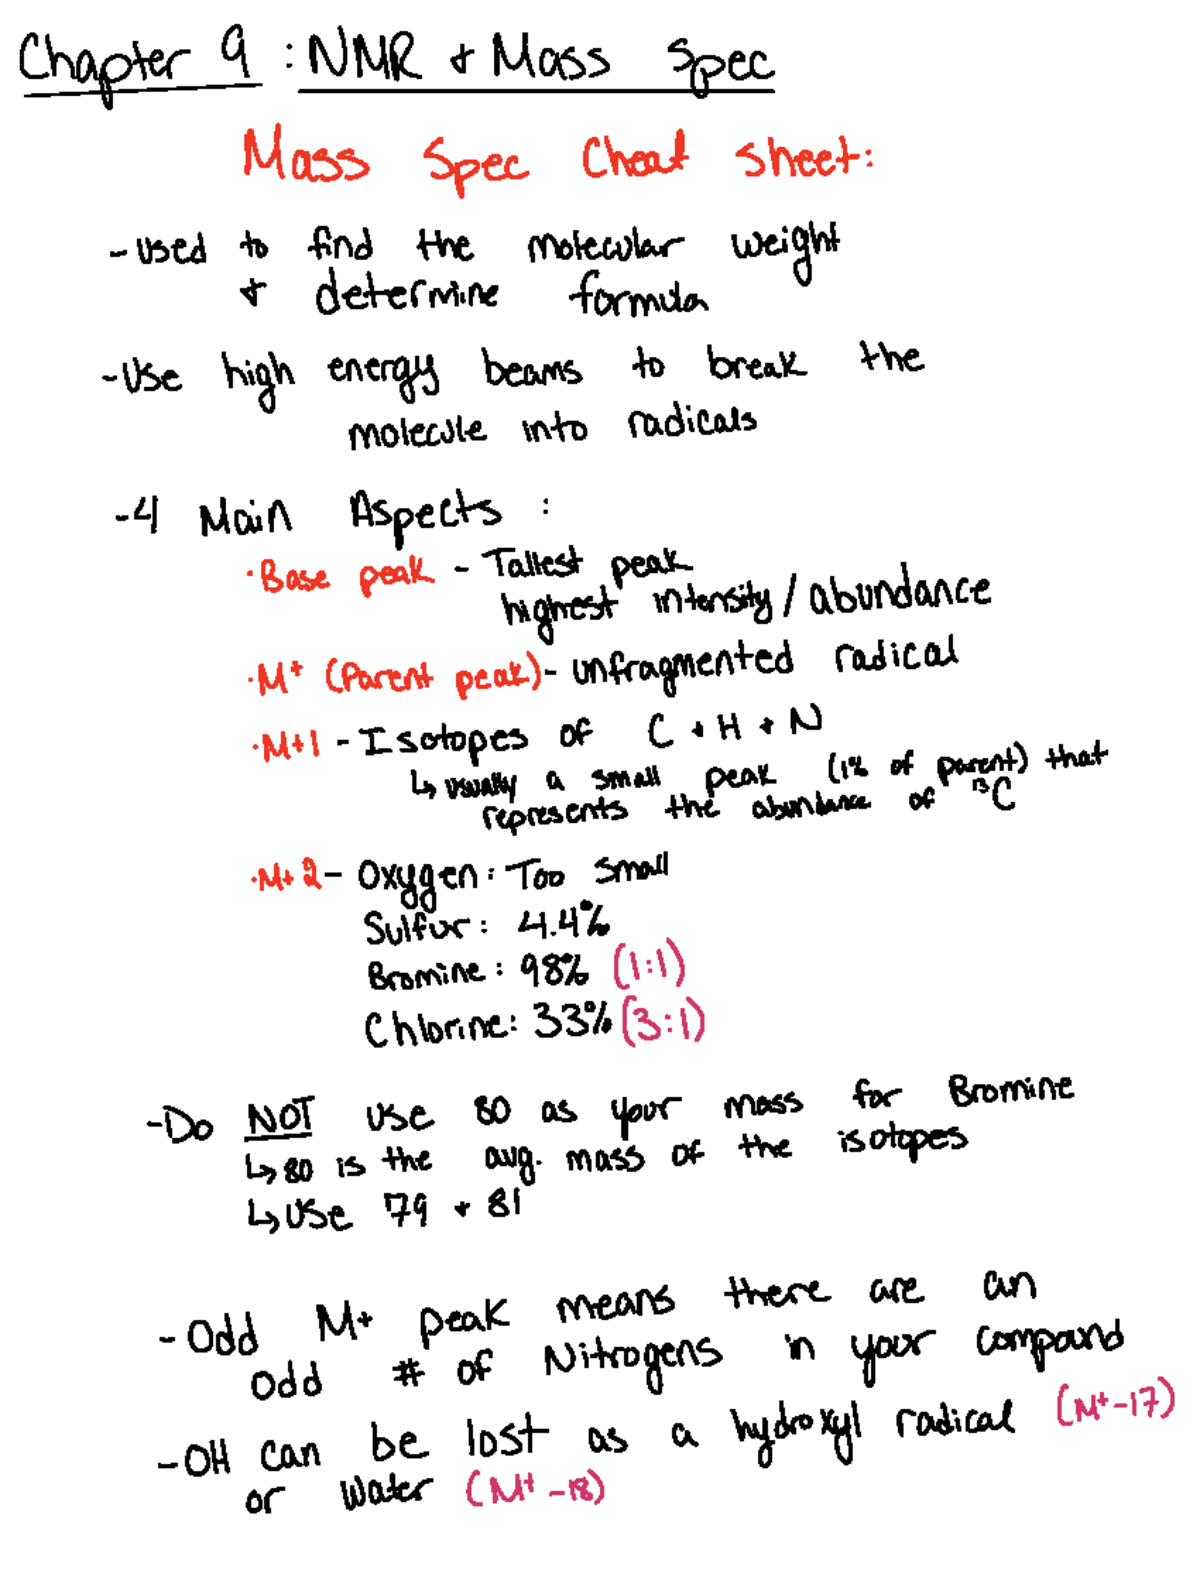 Chapter 9 : NMR + Mass Spec
Mass Spec Cheat Sheet:
- Used to find the molecular weight
+ determine formula
- Use high energy beams to break the
molecule into radicals
- 4 Main Aspects :
· Base peak - Tallest peak
highest intensity / abundance
· M+ (Parent peak) - unfragmented radical
· M+1 - Isotopes of C + H + N
↳ usually a small peak (1% of parent) that
represents the abundance of ¹³C
· M+2 - Oxygen : Too small
Sulfur : 4.4%
Bromine : 98% (1:1)
Chlorine : 33% (3:1)
- Do NOT use 80 as your mass for Bromine
↳ 80 is the avg. mass of the isotopes
↳ Use 79 + 81
- Odd M+ peak means there are an
odd # of Nitrogens in your compound
- OH can be lost as a hydroxyl radical (M+-17)
or water (M+-18)